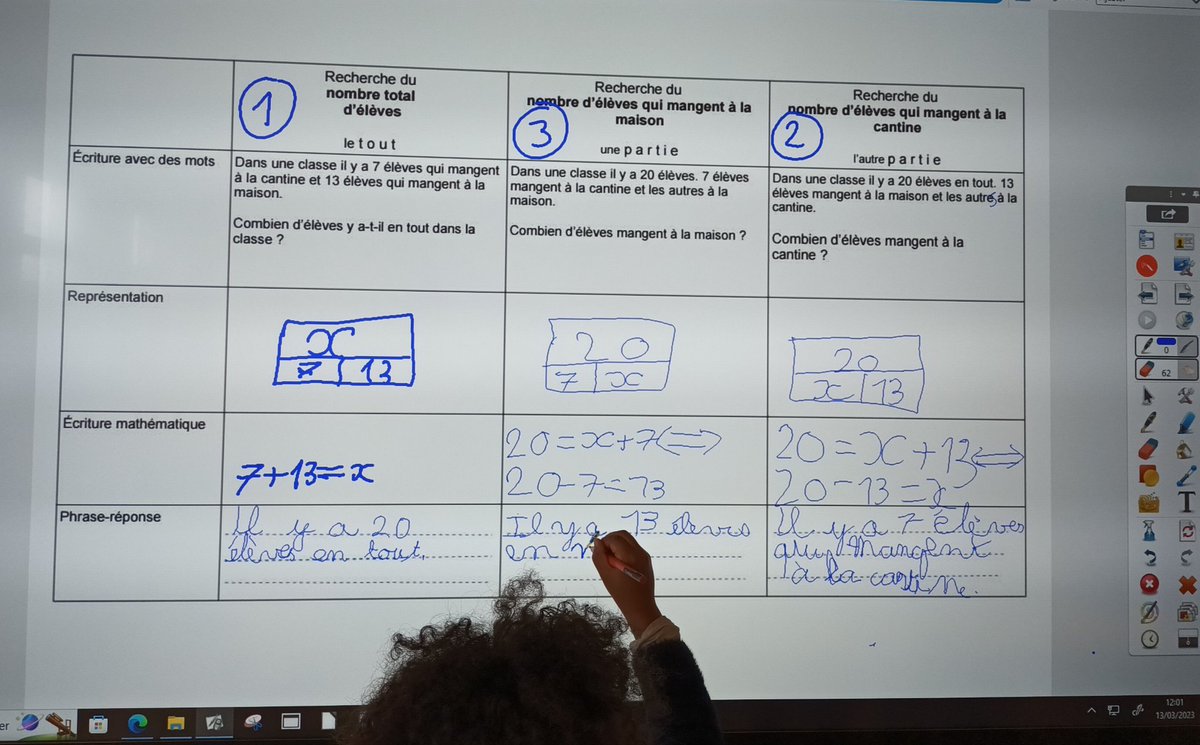 Recherche du
nombre total
d'élèves
1
le t o u t
Recherche du
nombre d'élèves qui mangent à la
maison
3
une p a r t i e
Recherche du
nombre d'élèves qui mangent à la
cantine
2
l'autre p a r t i e
Écriture avec des mots
Dans une classe il y a 7 élèves qui mangent
à la cantine et 13 élèves qui mangent à la
maison.
Combien d'élèves y a-t-il en tout dans la
classe ?
Dans une classe il y a 20 élèves. 7 élèves
mangent à la cantine et les autres à la
maison.
Combien d'élèves mangent à la maison ?
Dans une classe il y a 20 élèves en tout. 13
élèves mangent à la maison et les autres à la
cantine.
Combien d'élèves mangent à la
cantine ?
Représentation
x
7 13
20
7 x
20
x 13
Écriture mathématique
7+13=x
20=x+7⟺
20-7=13
20=x+13⟺
20-13=
Phrase-réponse
Il y a 20
élèves en tout.
Il y a 13 élèves
en
Il y a 7 élèves
qui mangent
à la cantine.
62
0
T
12:01
13/03/2023